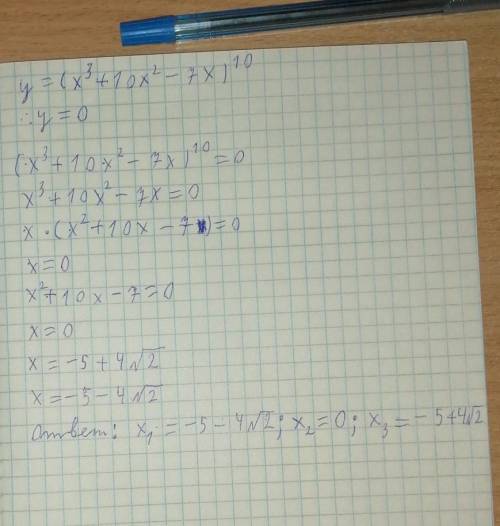 y = (x³ + 10x² - 7x)¹⁰
∴ y = 0
(x³ + 10x² - 7x)¹⁰ = 0
x³ + 10x² - 7x = 0
x · (x² + 10x - 7) = 0
x = 0
x² + 10x - 7 = 0
x = 0
x = -5 + 4√2
x = -5 - 4√2
ответ: x₁ = -5 - 4√2; x₂ = 0; x₃ = -5 + 4√2